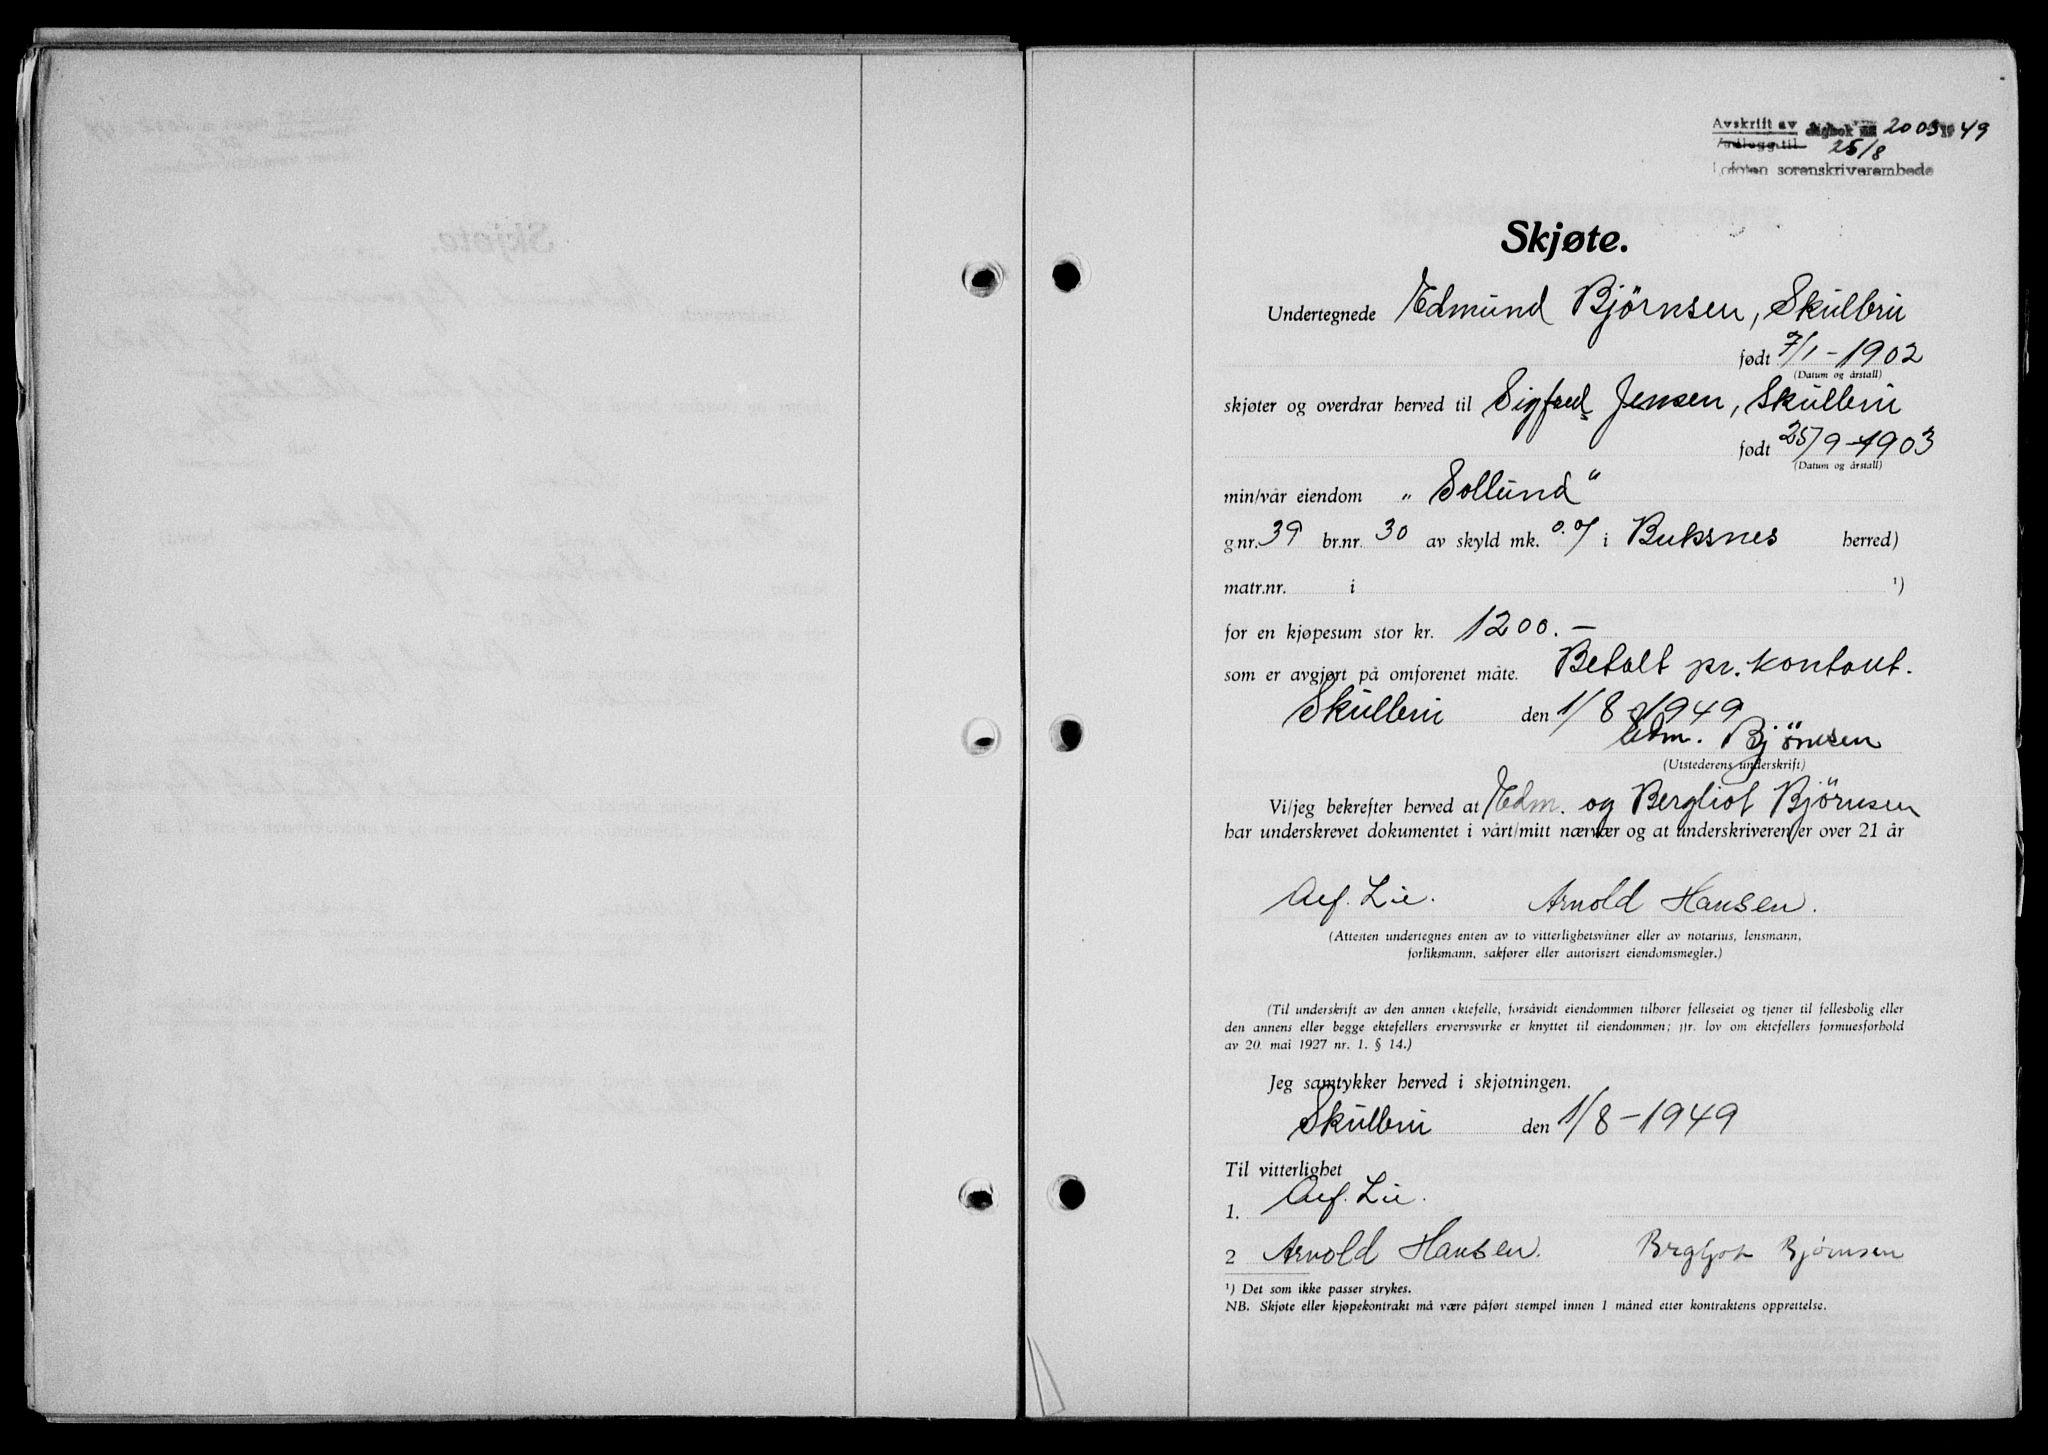 Avskrift av dagbok nr. 2003 1949
Vedlegg til 25/8
Lofoten sorenskriverembede
Skjøte.
Undertegnede Edmund Bjørnsen, Skulbru
født 7/1-1902
(Datum og årstall)
skjøter og overdrar herved til Sigfred Jensen, Skulbru
født 25/9-1903
(Datum og årstall)
min/vår eiendom „Sollund“
gnr. 39 br.nr. 30 av skyld mk. 0.07 i Buksnes herred)
matr.nr. i ¹)
for en kjøpesum stor kr. 1200.—
som er avgjort på omforenet måte. Betalt pr. kontant.
Skulbru den 1/8-1949
Edm. Bjørnsen
(Utstederens underskrift)
Vi/jeg bekrefter herved at Edm. og Bergliot Bjørnsen
har underskrevet dokumentet i vårt/mitt nærvær og at underskriveren er over 21 år
Alf. Lie. Arnold Hansen.
(Attesten undertegnes enten av to vitterlighetsvitner eller av notarius, lensmann,
forliksmann, sakfører eller autorisert eiendomsmegler.)
(Til underskrift av den annen ektefelle, forsåvidt eiendommen tilhører felleseiet og tjener til fellesbolig eller
den annens eller begge ektefellers ervervsvirke er knyttet til eiendommen; jfr. lov om ektefellers formuesforhold
av 20. mai 1927 nr. 1. § 14.)
Jeg samtykker herved i skjøtningen.
Skulbru den 1/8-1949
Til vitterlighet
1. Alf. Lie.
2 Arnold Hansen. Bergljot Bjørnsen
¹) Det som ikke passer strykes.
NB. Skjøte eller kjøpekontrakt må være påført stempel innen 1 måned etter kontraktens opprettelse.